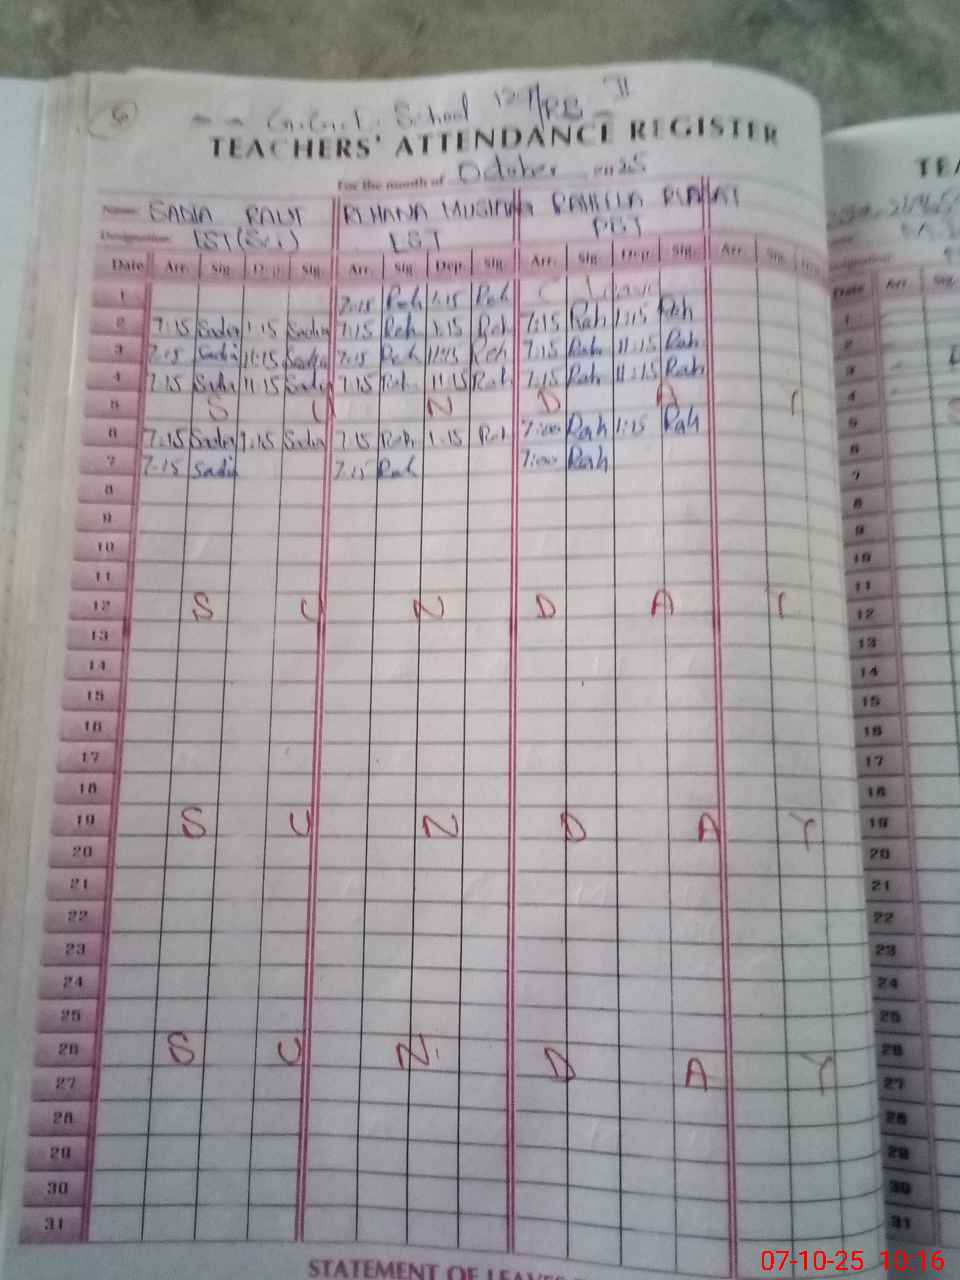 6
G.G. School 127/RB II
TEACHERS' ATTENDANCE REGISTER
For the month of October 2025
Name SADIA RAUF REHANA MUSHTAQ RAHEELA RIASAT
Designation EST(Sci) EST PST
Date Arr. Sig. Dep. Sig. Arr. Sig. Dep. Sig. Arr. Sig. Dep. Sig. Arr. Sig.
1 7:15 Reh 1:15 Reh C Leave
2 7:15 Sadia 1:15 Sadia 7:15 Reh 1:15 Reh 7:15 Rah 1:15 Rah
3 7:15 Sadia 11:15 Sadia 7:15 Reh 11:15 Reh 7:15 Rah 11:15 Rah
4 7:15 Sadia 11:15 Sadia 7:15 Reh 11:15 Reh 7:15 Rah 11:15 Rah
5 S U N D A Y
6 7:15 Sadia 1:15 Sadia 7:15 Reh 1:15 Reh 7:00 Rah 1:15 Rah
7 7:15 Sadia 7:15 Reh 7:00 Rah
8
9
10
11
12 S U N D A Y
13
14
15
16
17
18
19 S U N D A Y
20
21
22
23
24
25
26 S U N D A Y
27
28
29
30
31
STATEMENT OF LEAVE
TEA
Date Arr. Sig.
1
2
3
4
5
6
7
8
9
10
11
12
13
14
15
16
17
18
19
20
21
22
23
24
25
26
27
28
29
30
31
07-10-25 10:16